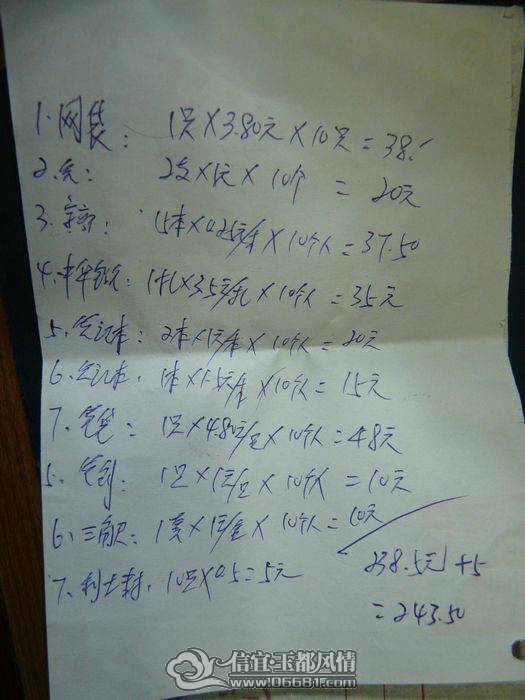 1.网袋: 1只×3.80元×10只=38.
2.笔: 2支×1元×10个=20元
3. : 15本×0.25元/本×10个人=37.50
4.中华铅: 1扎×3.5元/扎×10个人=35元
5.笔记本: 2本×1元/本×10个人=20元
6.笔记本, 1本×1.5元/本×10个人=15元
7.笔袋: 1只×4.80元/只×10个人=48元
5.笔刨: 1只×1元/只×10个人=10元
6、三角尺: 1套×1元/套×10个人=10元
7.利士封, 10只×0.5=5元
238.5元+5
=243.50
信宜玉都风情
www.06681.com